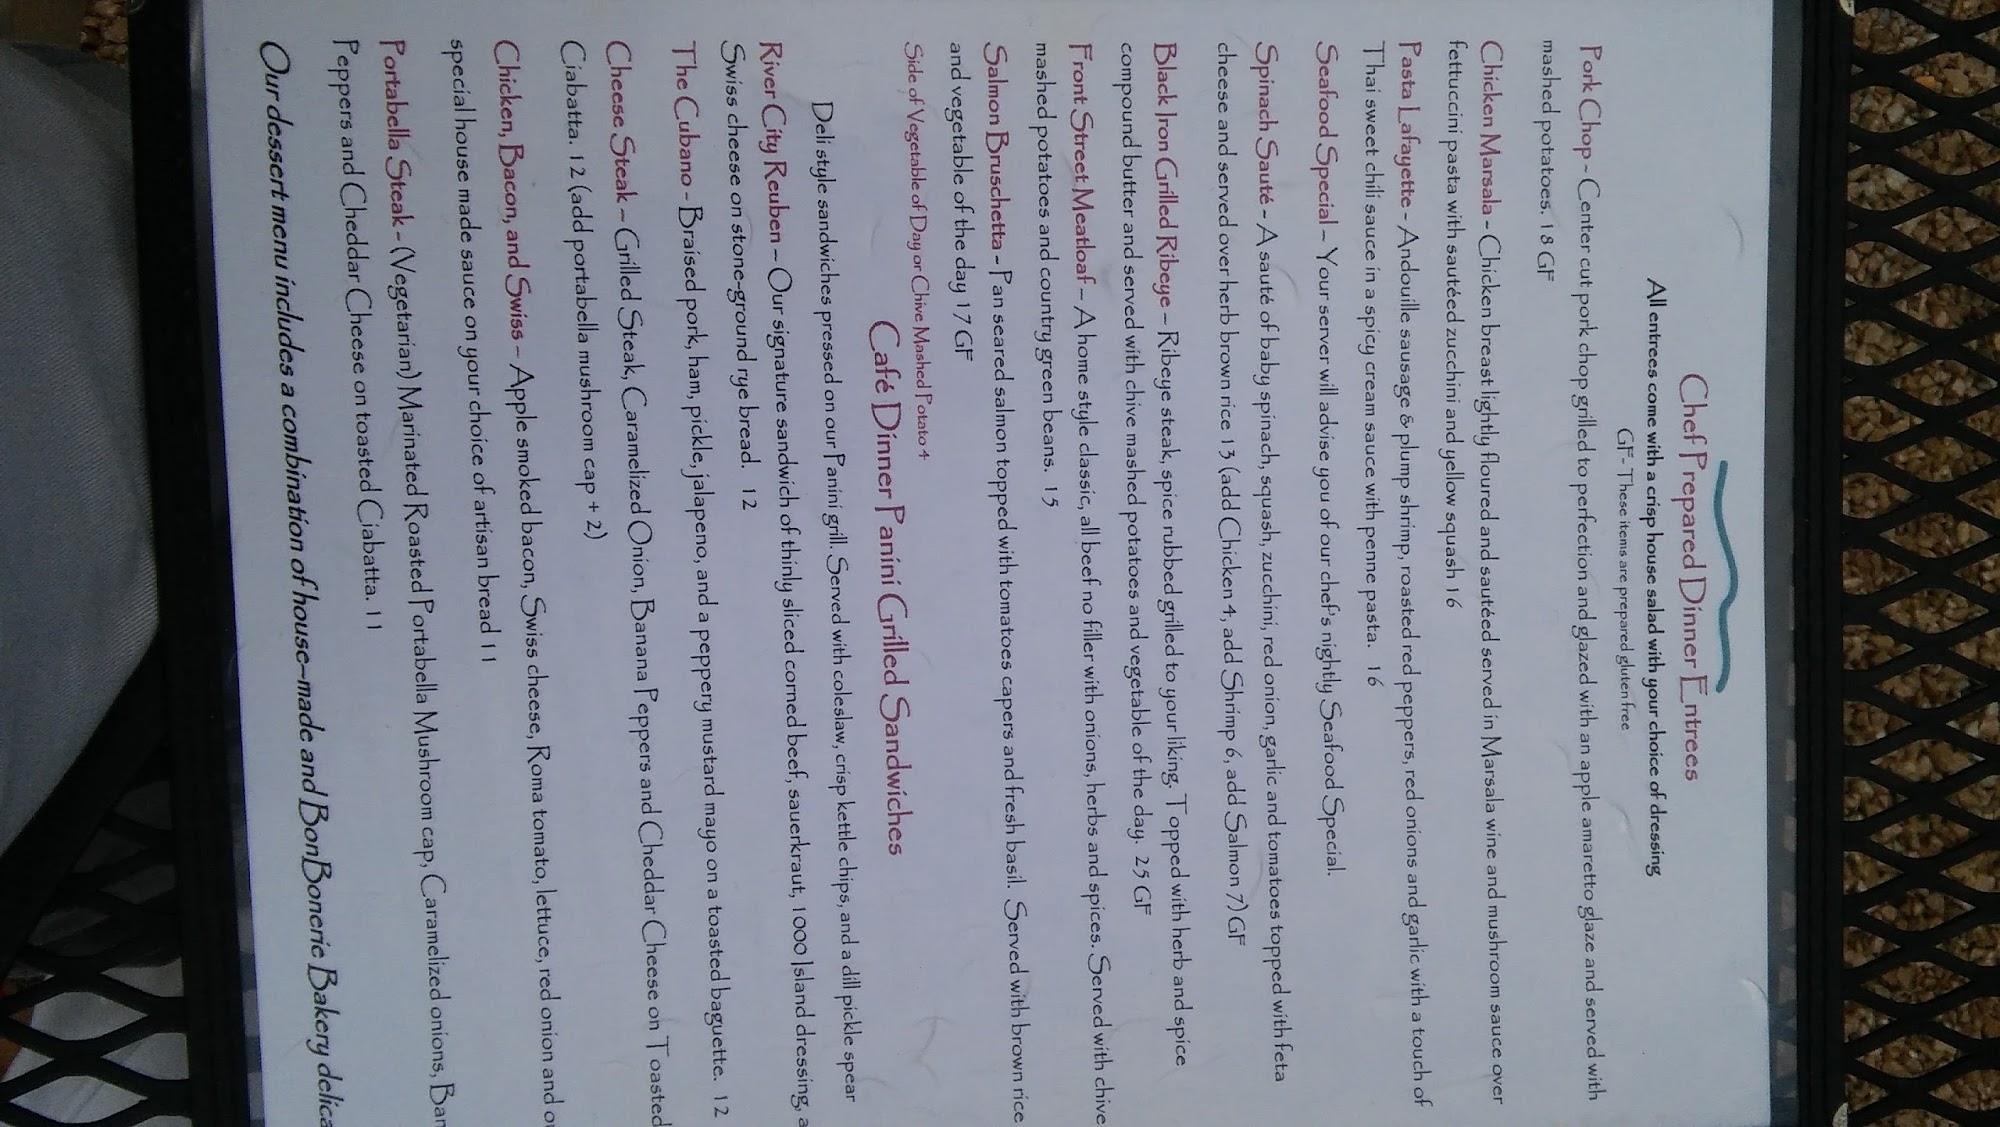 Chef Prepared Dinner Entrees
All entrees come with a crisp house salad with your choice of dressing
GF- These items are prepared gluten free
Pork Chop - Center cut pork chop grilled to perfection and glazed with an apple amaretto glaze and served with
mashed potatoes. 18 GF
Chicken Marsala - Chicken breast lightly floured and sautéed served in Marsala wine and mushroom sauce over
fettuccini pasta with sautéed zucchini and yellow squash 16
Pasta Lafayette - Andouille sausage & plump shrimp, roasted red peppers, red onions and garlic with a touch of
Thai sweet chili sauce in a spicy cream sauce with penne pasta. 16
Seafood Special – Your server will advise you of our chef's nightly Seafood Special.
Spinach Sauté - A sauté of baby spinach, squash, zucchini, red onion, garlic and tomatoes topped with feta
cheese and served over herb brown rice 13 (add Chicken 4, add Shrimp 6, add Salmon 7) GF
Black Iron Grilled Ribeye – Ribeye steak, spice rubbed grilled to your liking. Topped with herb and spice
compound butter and served with chive mashed potatoes and vegetable of the day. 25 GF
Front Street Meatloaf – A home style classic, all beef no filler with onions, herbs and spices. Served with chive
mashed potatoes and country green beans. 15
Salmon Bruschetta - Pan seared salmon topped with tomatoes capers and fresh basil. Served with brown rice
and vegetable of the day 17 GF
Side of Vegetable of Day or Chive Mashed Potato 4
Café Dinner Panini Grilled Sandwiches
Deli style sandwiches pressed on our Panini grill. Served with coleslaw, crisp kettle chips, and a dill pickle spear
River City Reuben – Our signature sandwich of thinly sliced corned beef, sauerkraut, 1000 Island dressing, a
Swiss cheese on stone-ground rye bread. 12
The Cubano - Braised pork, ham, pickle, jalapeno, and a peppery mustard mayo on a toasted baguette. 12
Cheese Steak – Grilled Steak, Caramelized Onion, Banana Peppers and Cheddar Cheese on Toasted
Ciabatta. 12 (add portabella mushroom cap + 2)
Chicken, Bacon, and Swiss – Apple smoked bacon, Swiss cheese, Roma tomato, lettuce, red onion and o
special house made sauce on your choice of artisan bread 11
Portabella Steak - (Vegetarian) Marinated Roasted Portabella Mushroom cap, Caramelized onions, Ban
Peppers and Cheddar Cheese on toasted Ciabatta. 11
Our dessert menu includes a combination of house-made and BonBonerie Bakery delica